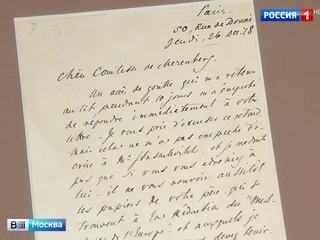 РОССИЯ 1
Paris.
50, Rue de Douai
Jeudi, 26 Déc. 78
Chère Comtesse de Merenberg,
Un accès de goutte qui m'a retenu
au lit pendant 10 jours m'a empêché
de répondre immédiatement à votre
lettre. Je vous prie d'excuser ce retard
mais cela ne m'a pas empêché d'é-
crire à Mr Stassulevitch, et je ne doute
pas que si vous vous adressez à
lui - il ne vous renvoie aussitôt
les papiers de votre père, qui se
trouvent à la rédaction du "Mes-
de l'Europe" et auxquels je
devez tenir.
ВЕСТИ Москва